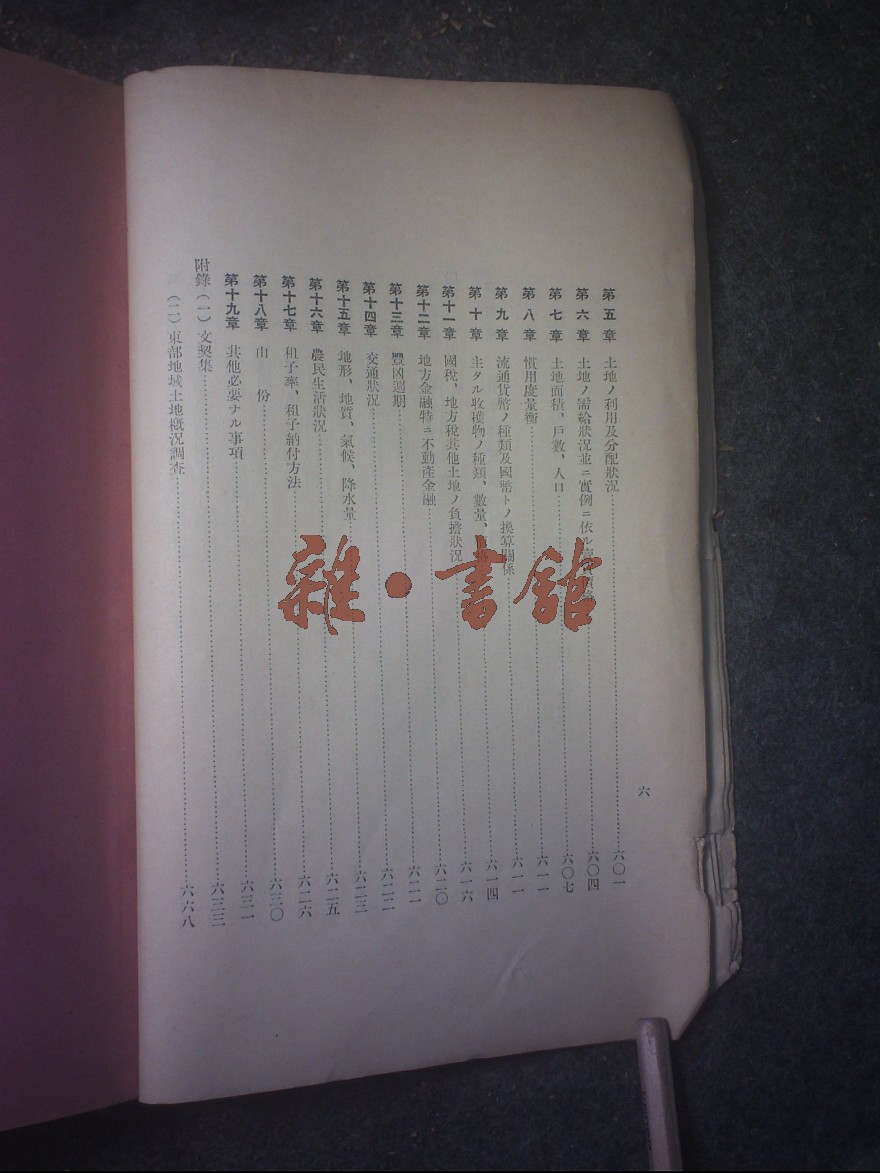 六
第五章 土地ノ利用及分配狀況……六〇一
第六章 土地ノ需給狀況並ニ實例ニ依ル……六〇四
第七章 土地面積、戶數、人口……六〇七
第八章 慣用度量衡……六一一
第九章 流通貨幣ノ種類及國幣トノ換算關係……六一一
第十章 主タル收穫物ノ種類、數量、……六一四
第十一章 國稅、地方稅其他土地ノ負擔狀況……六一六
第十二章 地方金融特ニ不動產金融……六二〇
第十三章 豐凶週期……六二一
第十四章 交通狀況……六二二
第十五章 地形、地質、氣候、降水量……六二三
第十六章 農民生活狀況……六二五
第十七章 租子率、租子納付方法……六二六
第十八章 山 份……六三〇
第十九章 其他必要ナル事項……六三一
附錄(一) 文契集……六三三
(二) 東部地域土地概況調查……六六八
雜·書館